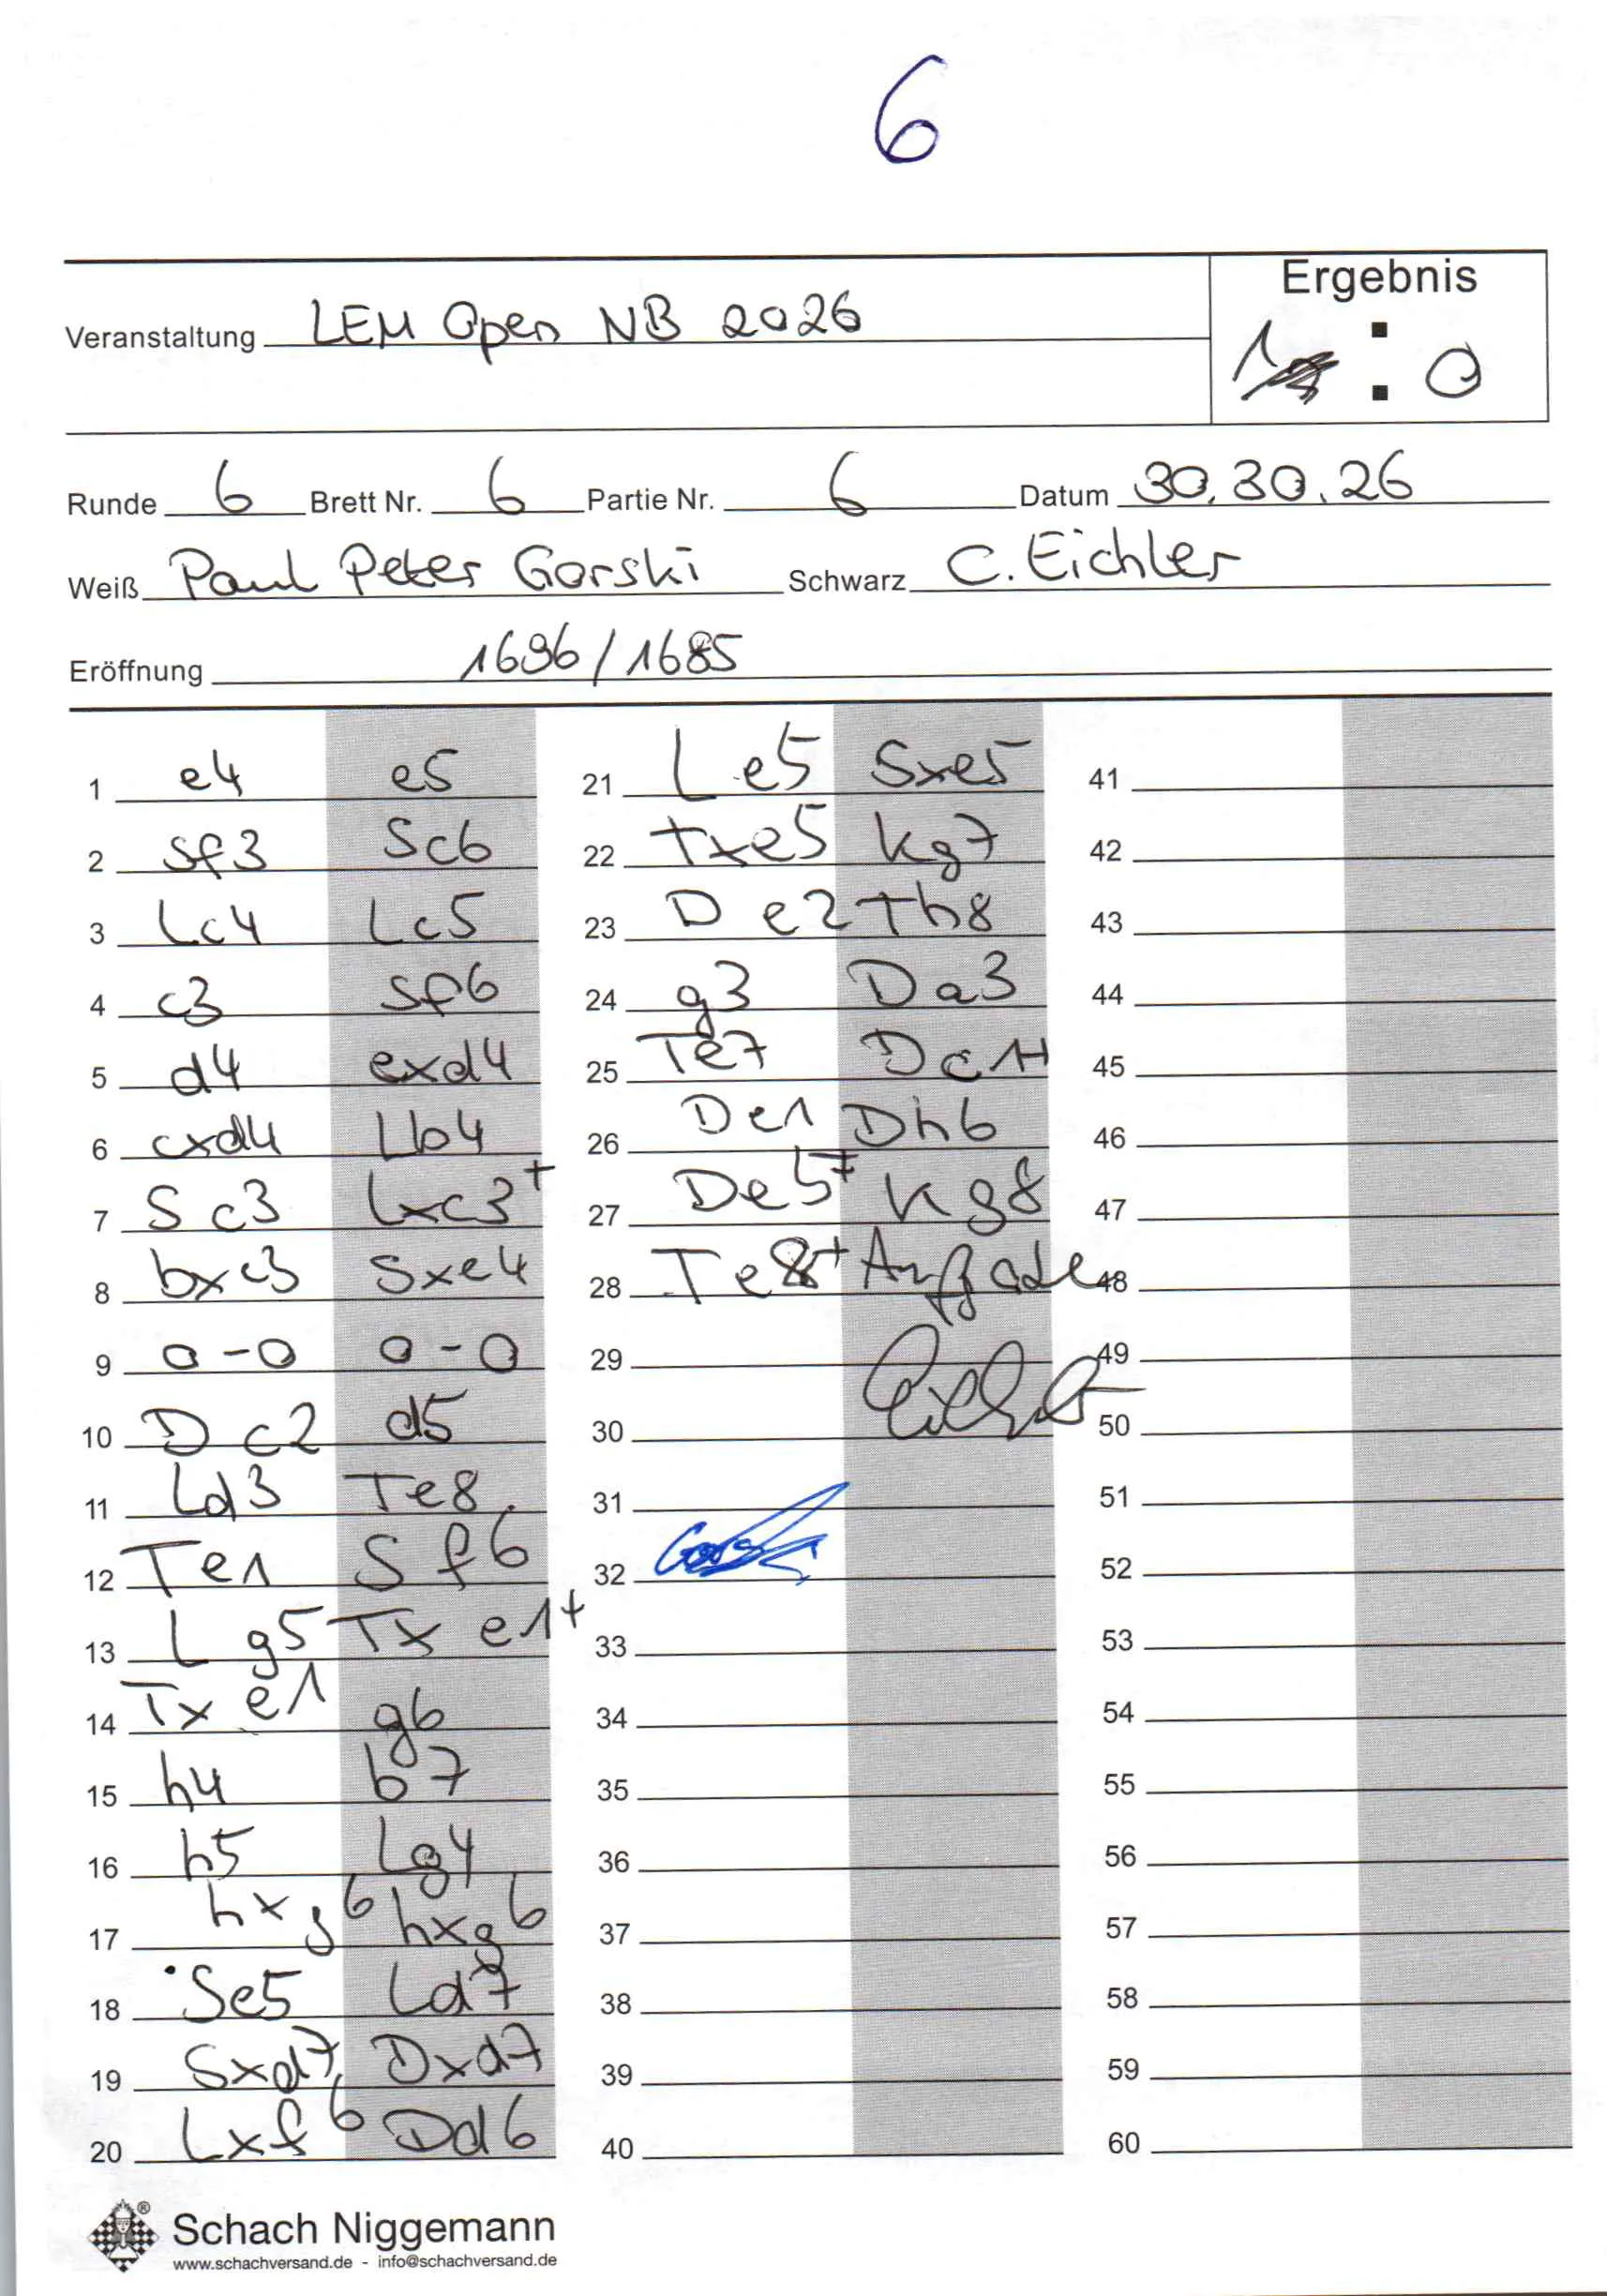 6
Ergebnis
Veranstaltung LEM Open NB 2026
1 : 0
Runde 6 Brett Nr. 6 Partie Nr. 6 Datum 30.30.26
Weiß Paul Peter Gorski Schwarz C. Eichler
Eröffnung 1696/1685
1 e4 e5
2 Sf3 Sc6
3 Lc4 Lc5
4 c3 Sf6
5 d4 exd4
6 cxd4 Lb4
7 Sc3 Lxc3+
8 bxc3 Sxe4
9 0-0 0-0
10 Dc2 d5
11 Ld3 Te8
12 Te1 Sf6
13 Lg5 Txe1+
14 Txe1 g6
15 h4 b7
16 h5 Lg4
17 hxg6 hxg6
18 Se5 Ld7
19 Sxd7 Dxd7
20 Lxf6 Dd6
21 Le5 Sxe5
22 Txe5 Kg7
23 De2 Th8
24 g3 Da3
25 Te7 Dc1+
26 De1 Dh6
27 De5+ Kg8
28 Te8+ Aufgabe
29
30
31
32
33
34
35
36
37
38
39
40
41
42
43
44
45
46
47
48
49
50
51
52
53
54
55
56
57
58
59
60
®
Schach Niggemann
www.schachversand.de - info@schachversand.de